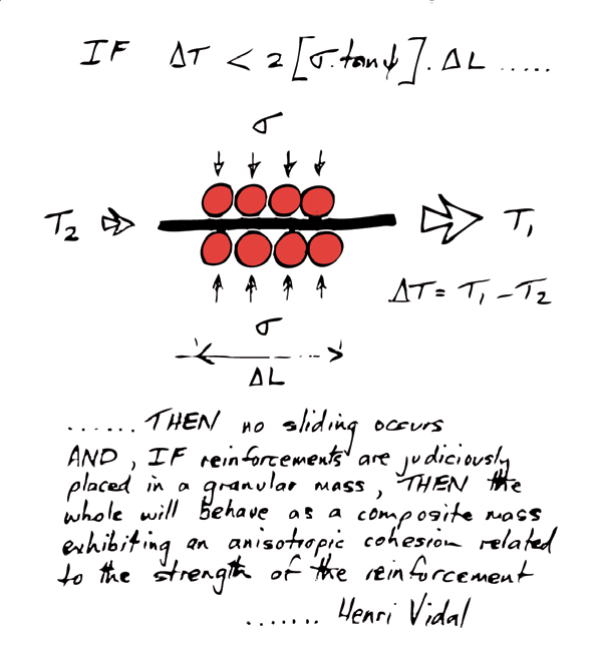 IF ΔT < 2 [σ.tanψ].ΔL .....
σ
T₂
T₁
ΔT = T₁ - T₂
σ
ΔL
...... THEN no sliding occurs
AND, IF reinforcements are judiciously
placed in a granular mass, THEN the
whole will behave as a composite mass
exhibiting an anisotropic cohesion related
to the strength of the reinforcement
....... Henri Vidal